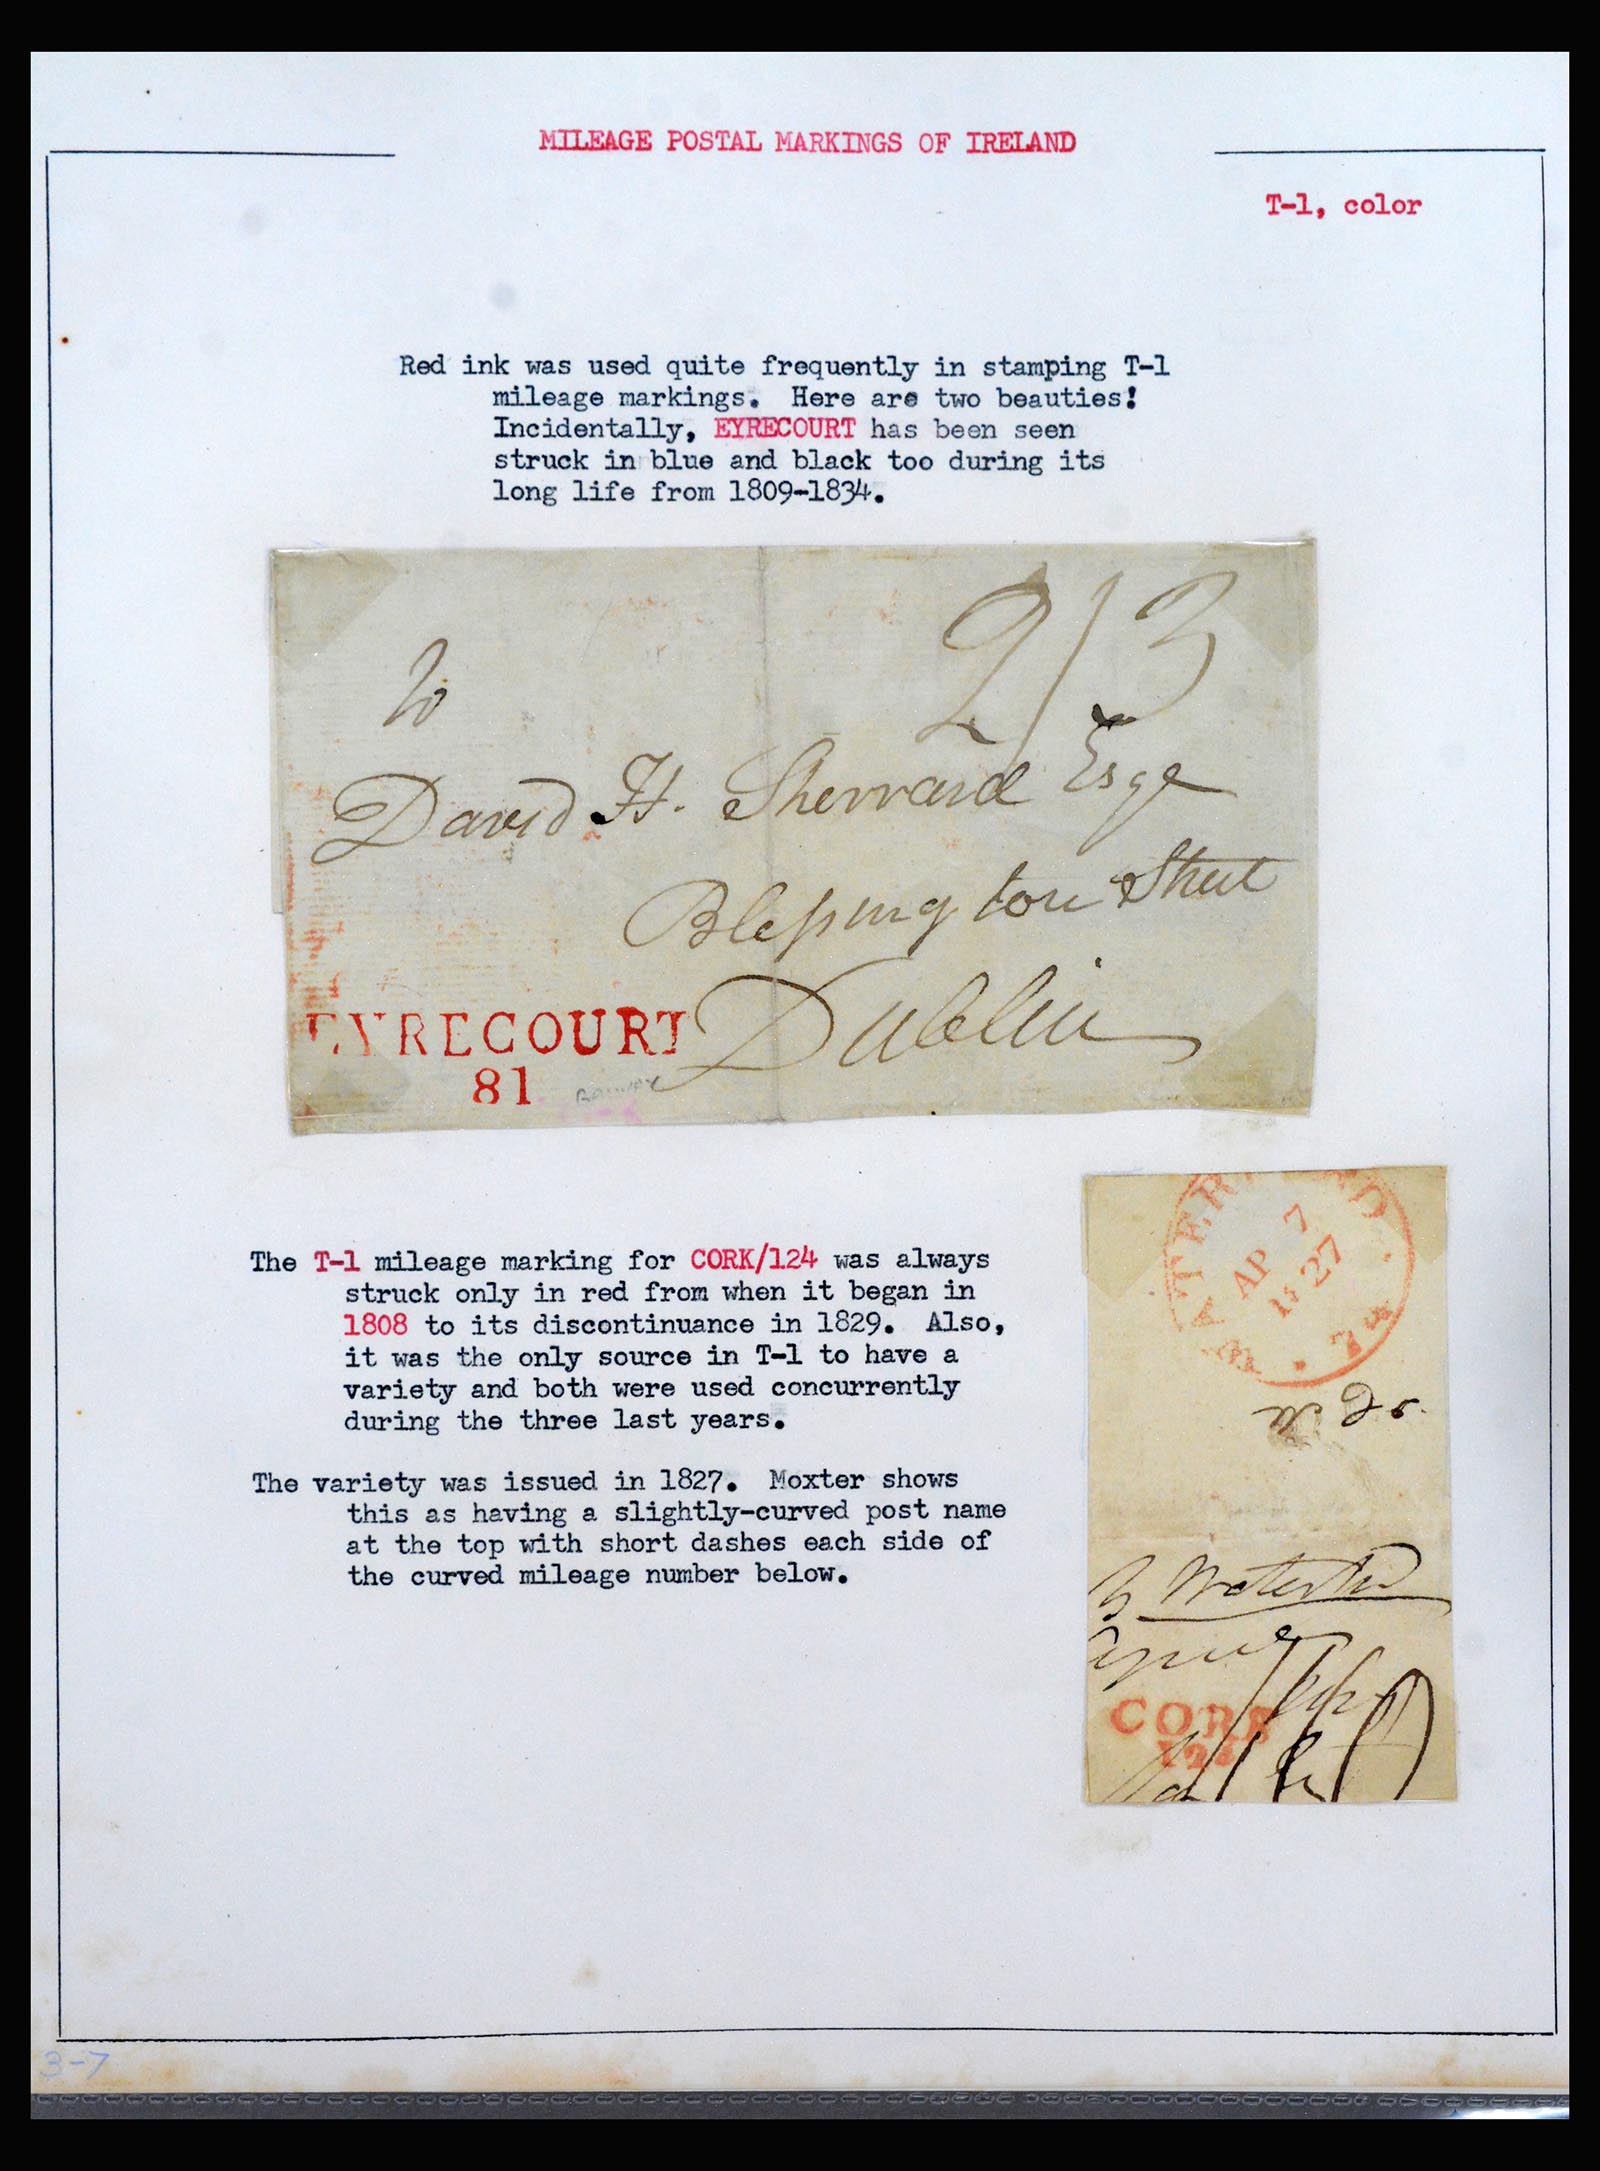 MILEAGE POSTAL MARKINGS OF IRELAND
T-1, color
Red ink was used quite frequently in stamping T-1
mileage markings. Here are two beauties!
Incidentally, EYRECOURT has been seen
struck in blue and black too during its
long life from 1809-1834.
2/3
To
David H. Sherrard Esqr
Blessington Street
Dublin
EYRECOURT
81
The T-1 mileage marking for CORK/124 was always
struck only in red from when it began in
1808 to its discontinuance in 1829. Also,
it was the only source in T-1 to have a
variety and both were used concurrently
during the three last years.
The variety was issued in 1827. Moxter shows
this as having a slightly-curved post name
at the top with short dashes each side of
the curved mileage number below.
WATERFORD
AP 7
1827
74
CORK
124
3-7